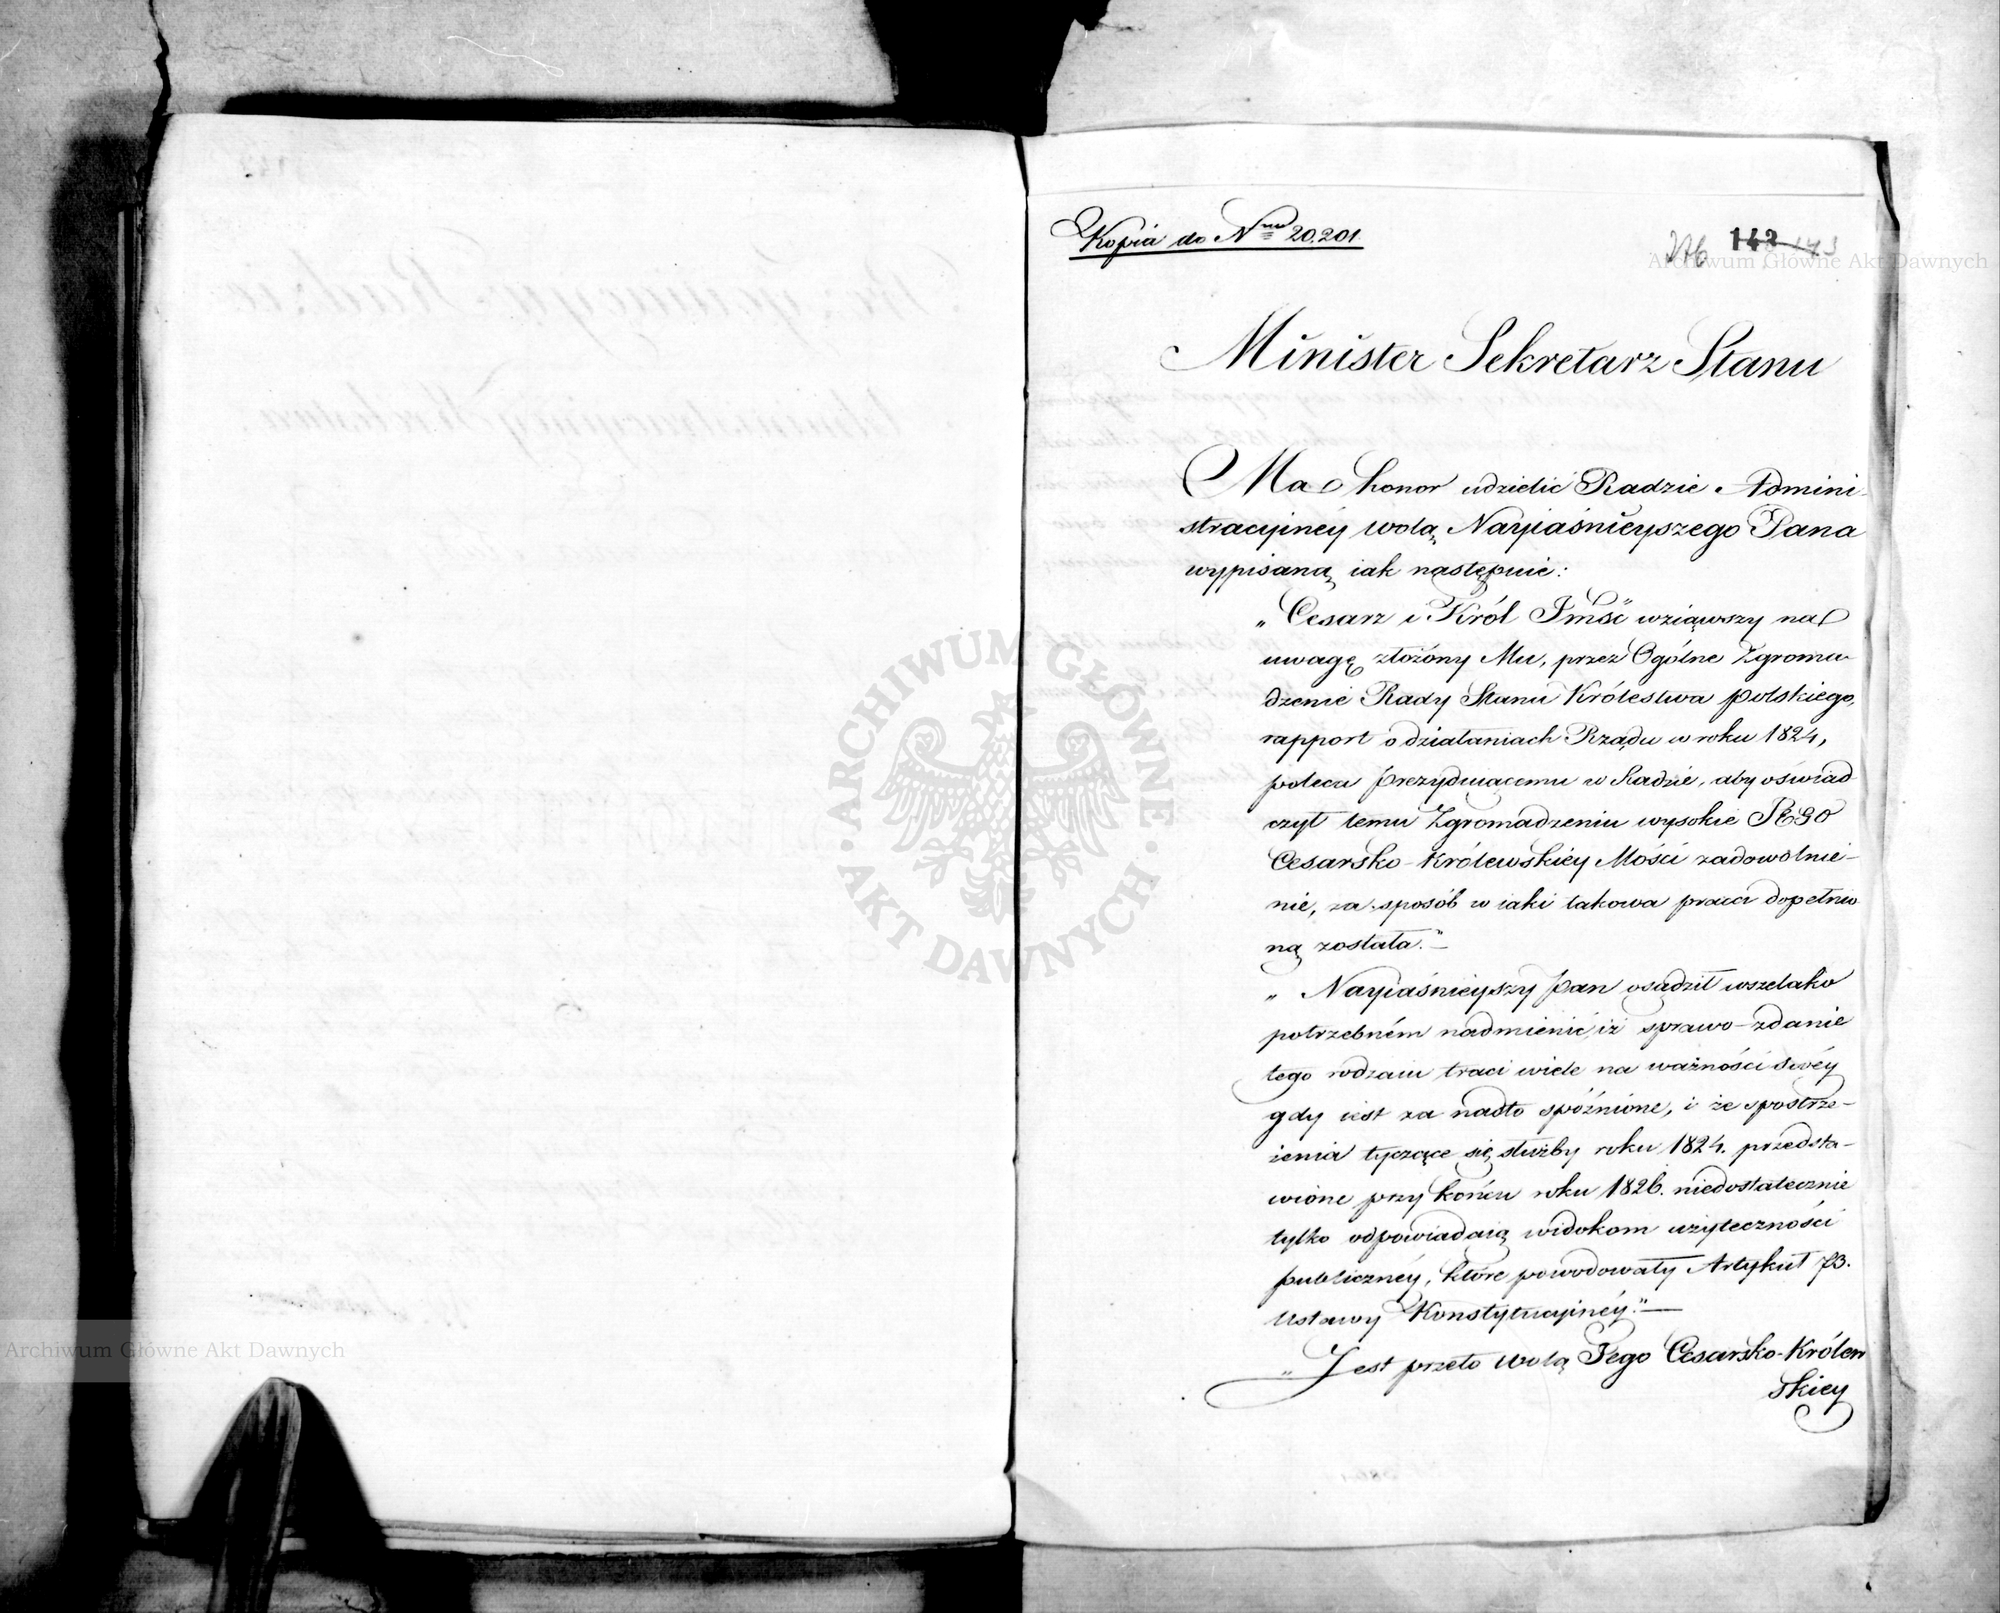 Kopia do Nru 20.201
142 143
Minister Sekretarz Stanu
Ma honor udzielić Radzie Admini-
stracyjnéy wolą Nayiaśnieyszego Pana
wypisaną iak następuie:
„Cesarz i Król Jmść wziąwszy na
uwagę złożony Mu, przez Ogólne Zgroma-
dzenie Rady Stanu Królestwa Polskiego,
rapport o działaniach Rządu w roku 1824,
poleca Prezyduiącemu w Radzie, aby oświad-
czył temu Zgromadzeniu wysokie JEGO
Cesarsko-Królewskiey Mości zadowolnie-
nie, za sposób w iaki takowa praca dopełnio-
ną została."—
„Nayiaśnieyszy Pan osądził wszelako
potrzebném nadmienić, iż sprawo-zdanie
tego rodzaiu traci wiele na ważności swéy
gdy iest za nadto spóźnione, i że spostrze-
żenia tyczące się służby roku 1824. przedsta-
wione przy końcu roku 1826. niedostatecznie
tylko odpowiadaią widokom użyteczności
publicznéy, które powodowały Artykuł 73.
Ustawy Konstytucyinéy."—
„Jest przeto wolą Jego Cesarsko-Królew
skiey
Archiwum Główne Akt Dawnych
ARCHIWUM GŁÓWNE
AKT DAWNYCH
Archiwum Główne Akt Dawnych